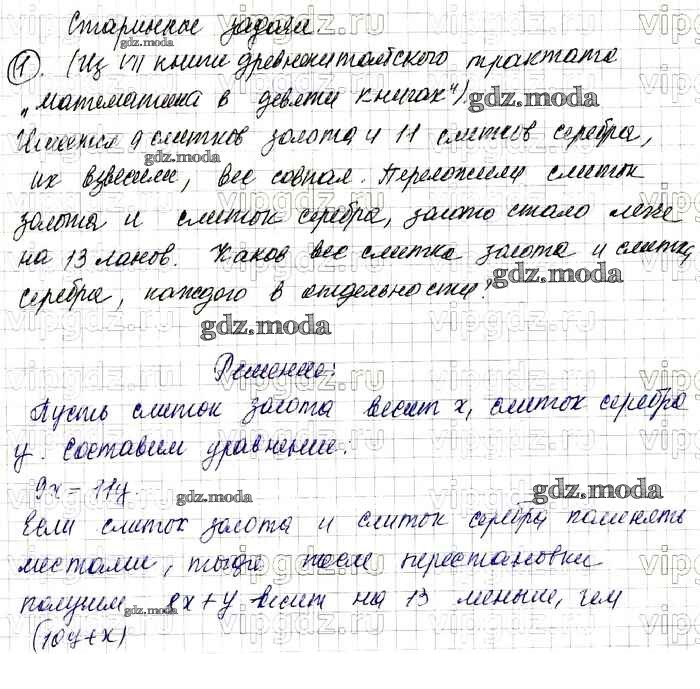 Старинные задачи
gdz.moda
1. (Из VII книги древнекитайского трактата
„математика в девяти книгах")
gdz.moda
Имеется 9 слитков золота и 11 слитков серебра,
gdz.moda
их взвесили, вес совпал. Переложили слиток
золота и слиток серебра, золото стало легче
на 13 ланов. Каков вес слитка золота и слитка
gdz.moda
серебра, каждого в отдельности?
gdz.moda
Решение:
Пусть слиток золота весит x, слиток серебра
y. Составим уравнение:
9x = 11y.
gdz.moda
gdz.moda
Если слиток золота и слиток серебра поменять
местами, тогда после перестановки
получим 8x+y весит на 13 меньше, чем
gdz.moda
(10y+x)
vipgdz.ru